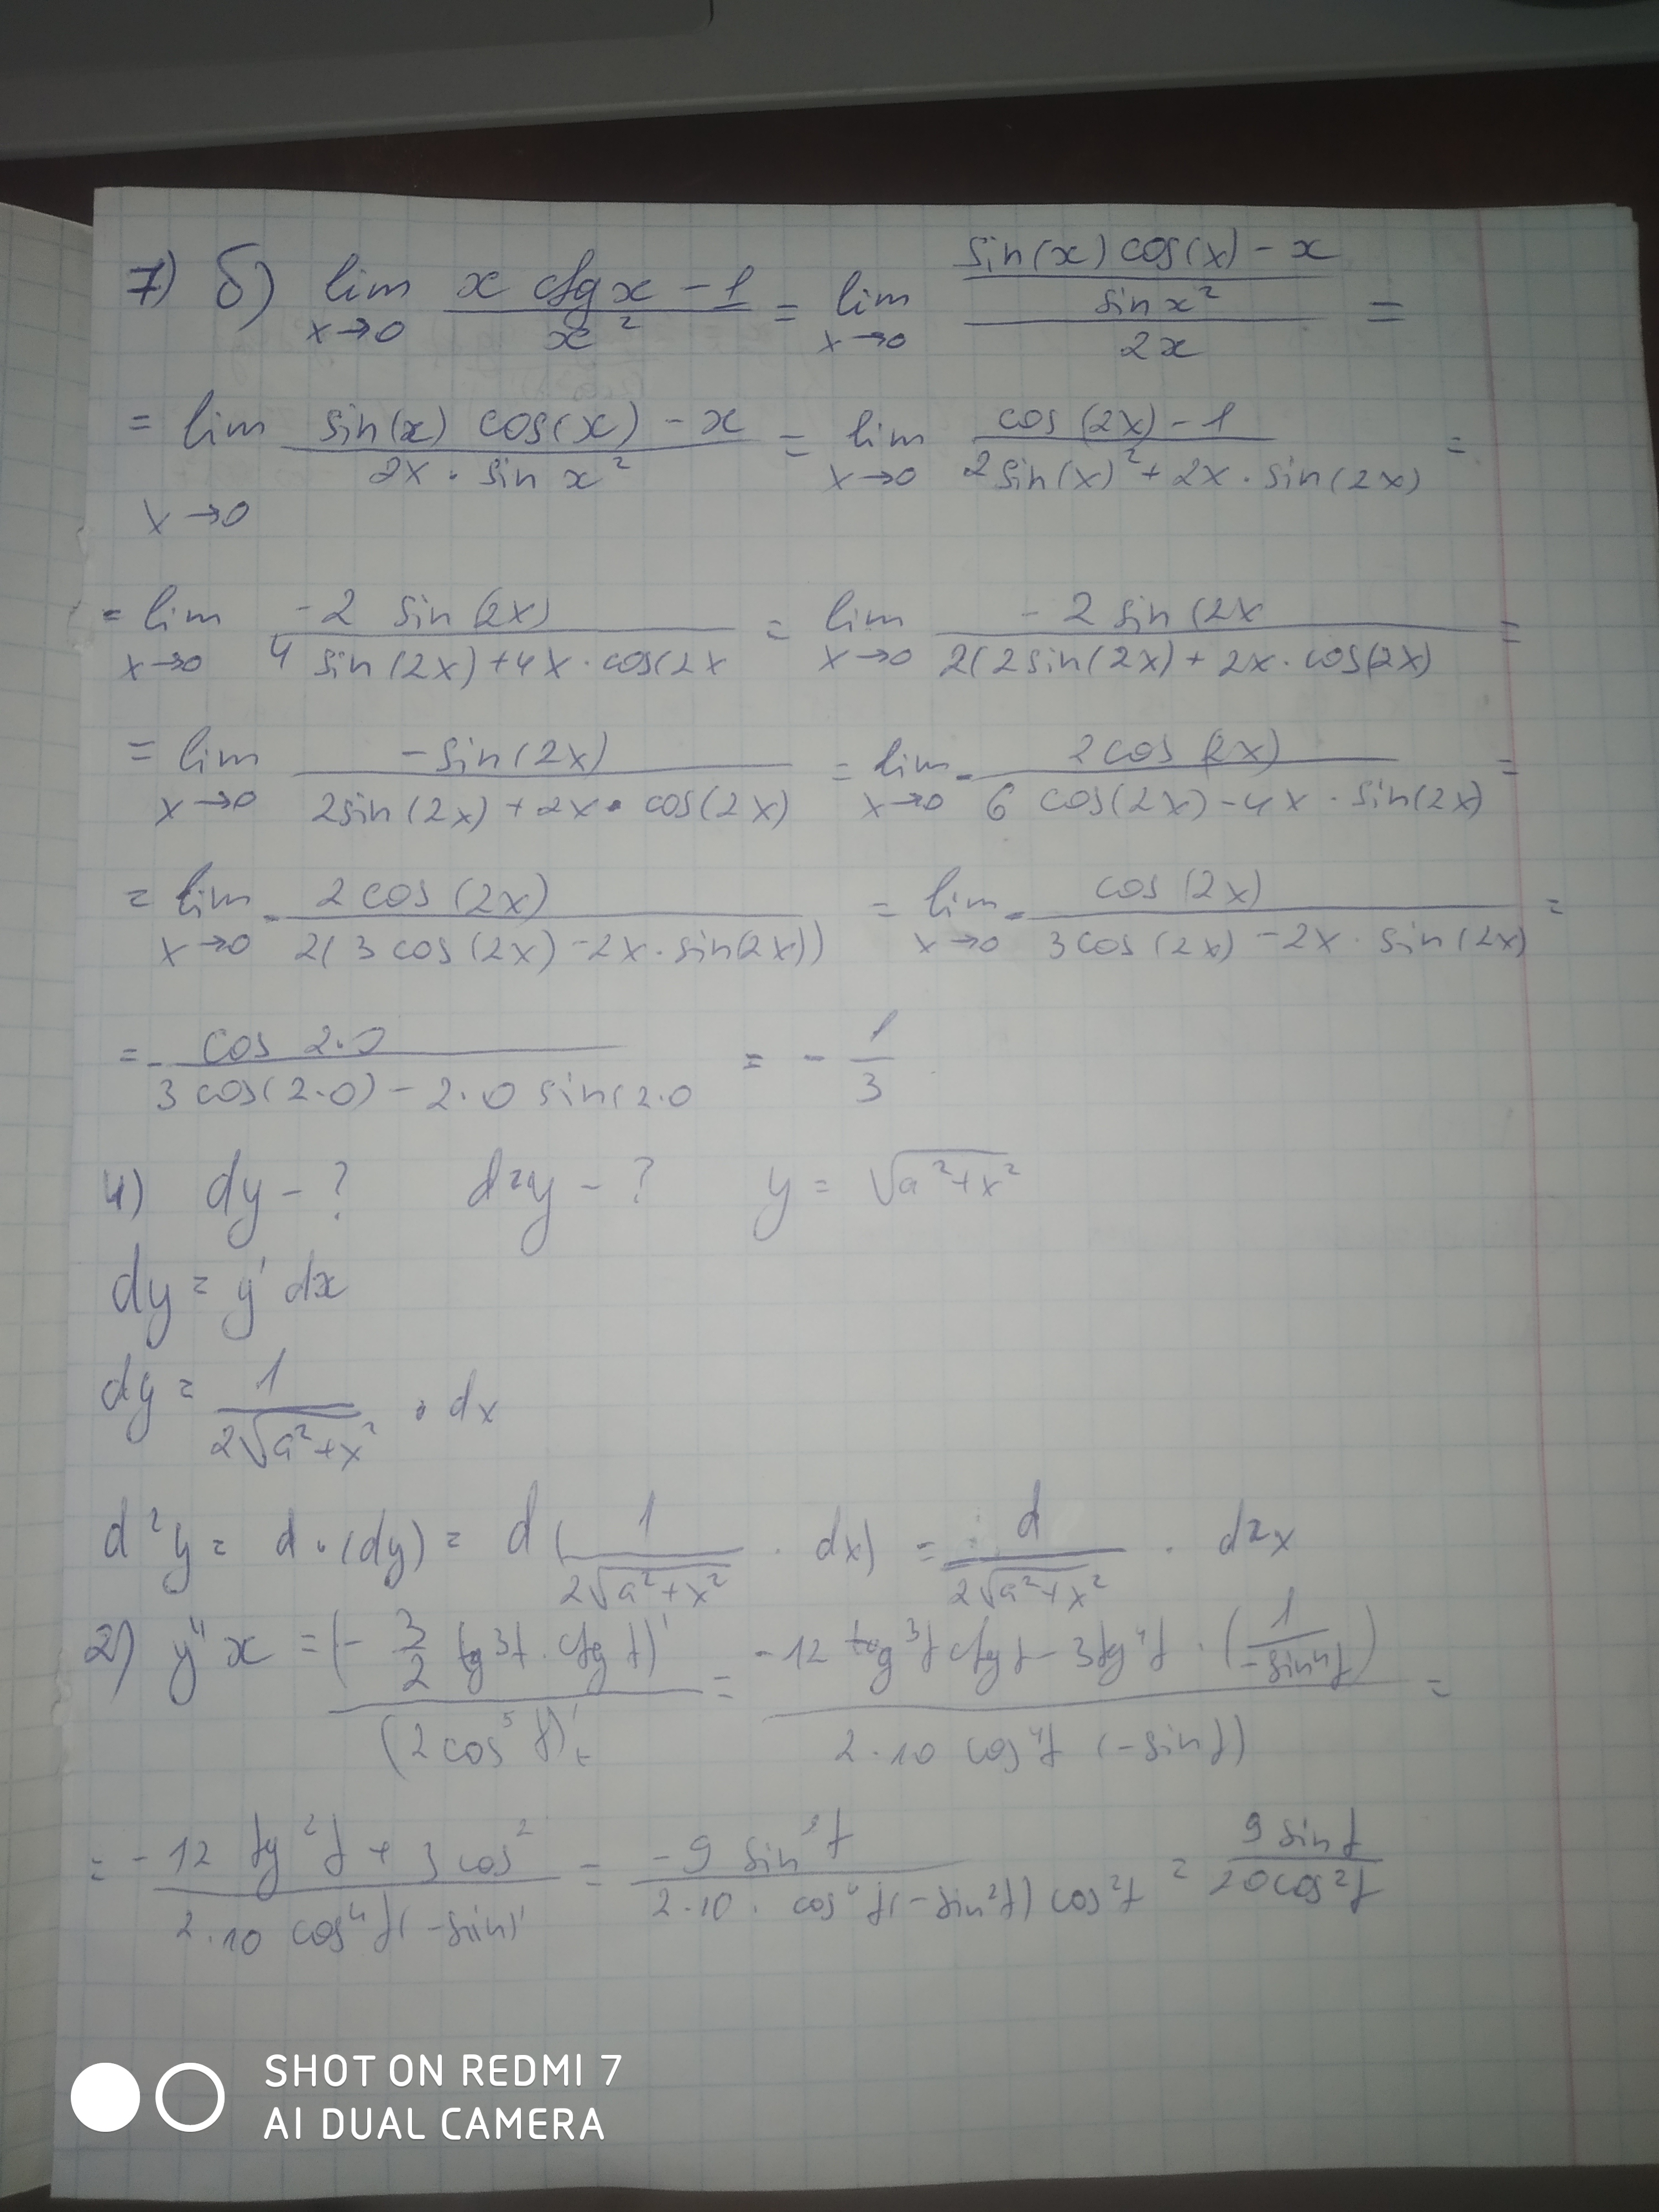 7) б) lim x→0 (x ctg x - 1)/(x²) = lim x→0 ((sin(x) cos(x) - x)/(sin x²))/(2x) =
= lim x→0 (sin(x) cos(x) - x)/(2x · sin x²) = lim x→0 (cos(2x) - 1)/(2sin(x)² + 2x · sin(2x)) =
= lim x→0 (-2 sin(2x))/(4 sin(2x) + 4x · cos(2x) = lim x→0 (-2 sin(2x)/(2(2sin(2x) + 2x · cos(2x)) =
= lim x→0 (-sin(2x))/(2sin(2x) + 2x · cos(2x)) = lim x→0 - (2cos(2x))/(6 cos(2x) - 4x · sin(2x)) =
= lim x→0 - (2cos(2x))/(2(3cos(2x) - 2x · sin(2x))) = lim x→0 - (cos(2x))/(3cos(2x) - 2x · sin(2x)) =
= - (cos 2·0)/(3cos(2·0) - 2·0 sin(2·0) = - 1/3
4) dy - ? d²y - ? y = √(a²+x²)
dy = y' dx
dy = 1/(2√(a²+x²)) · dx
d²y = d · (dy) = d (1/(2√(a²+x²)) · dx) = d/(2√(a²+x²)) · d2x
2) y'' x = (- 3/2 tg³t · ctg t)'/(2cos⁵t)'t = (-12 tg³t ctg t - 3tg⁴t · (1/(-sin⁴t)))/(2·10 cos⁴t (-sin t)) =
= (-12 tg²t + 3cos²)/(2·10 cos⁴t(-sin)' = (-9 sin²t)/(2·10 · cos⁴t(-sin²t) cos²t = (9 sin t)/(20cos²t)
SHOT ON REDMI 7
AI DUAL CAMERA